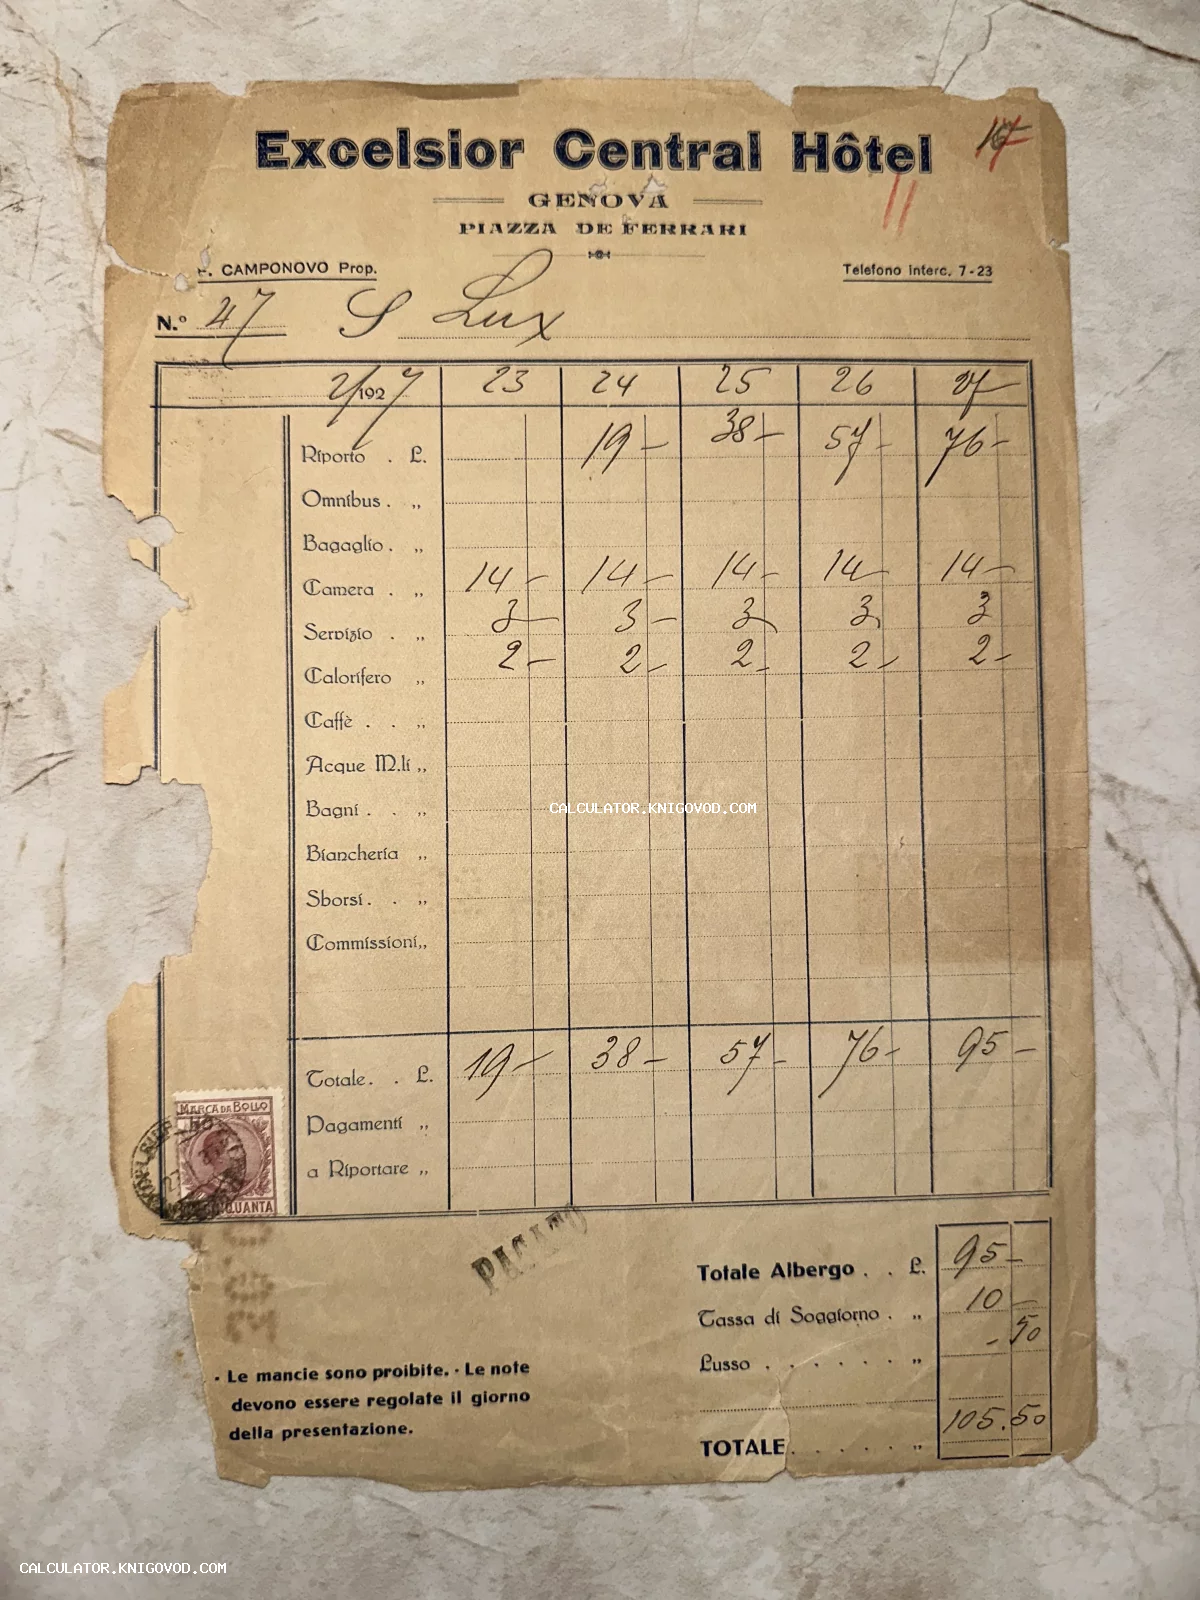 Excelsior Central Hôtel
GENOVA
PIAZZA DE FERRARI
F. CAMPONOVO Prop.
Telefono interc. 7-23
N.° 47 S Lux
2/1927 23 24 25 26 27
Riporto . L. 19- 38- 57- 76-
Omnibus . „
Bagaglio . „
Camera . „ 14- 14- 14- 14- 14-
Servizio . „ 3- 3- 3- 3 3
Calorifero „ 2- 2- 2- 2- 2-
Caffè . . „
Acque M.li „
Bagni . . „
Biancheria „
Sborsi . . „
Commissioni „
Totale . . L. 19- 38- 57- 76- 95-
Pagamenti „
a Riportare „
MARCA DA BOLLO
PAGATO
Totale Albergo . . L. 95-
Tassa di Soggiorno . „ 10-
-50
Lusso . . . . . . „
TOTALE . . . . . „ 105.50
- Le mancie sono proibite. - Le note
devono essere regolate il giorno
della presentazione.
CALCULATOR.KNIGOVOD.COM
CALCULATOR.KNIGOVOD.COM